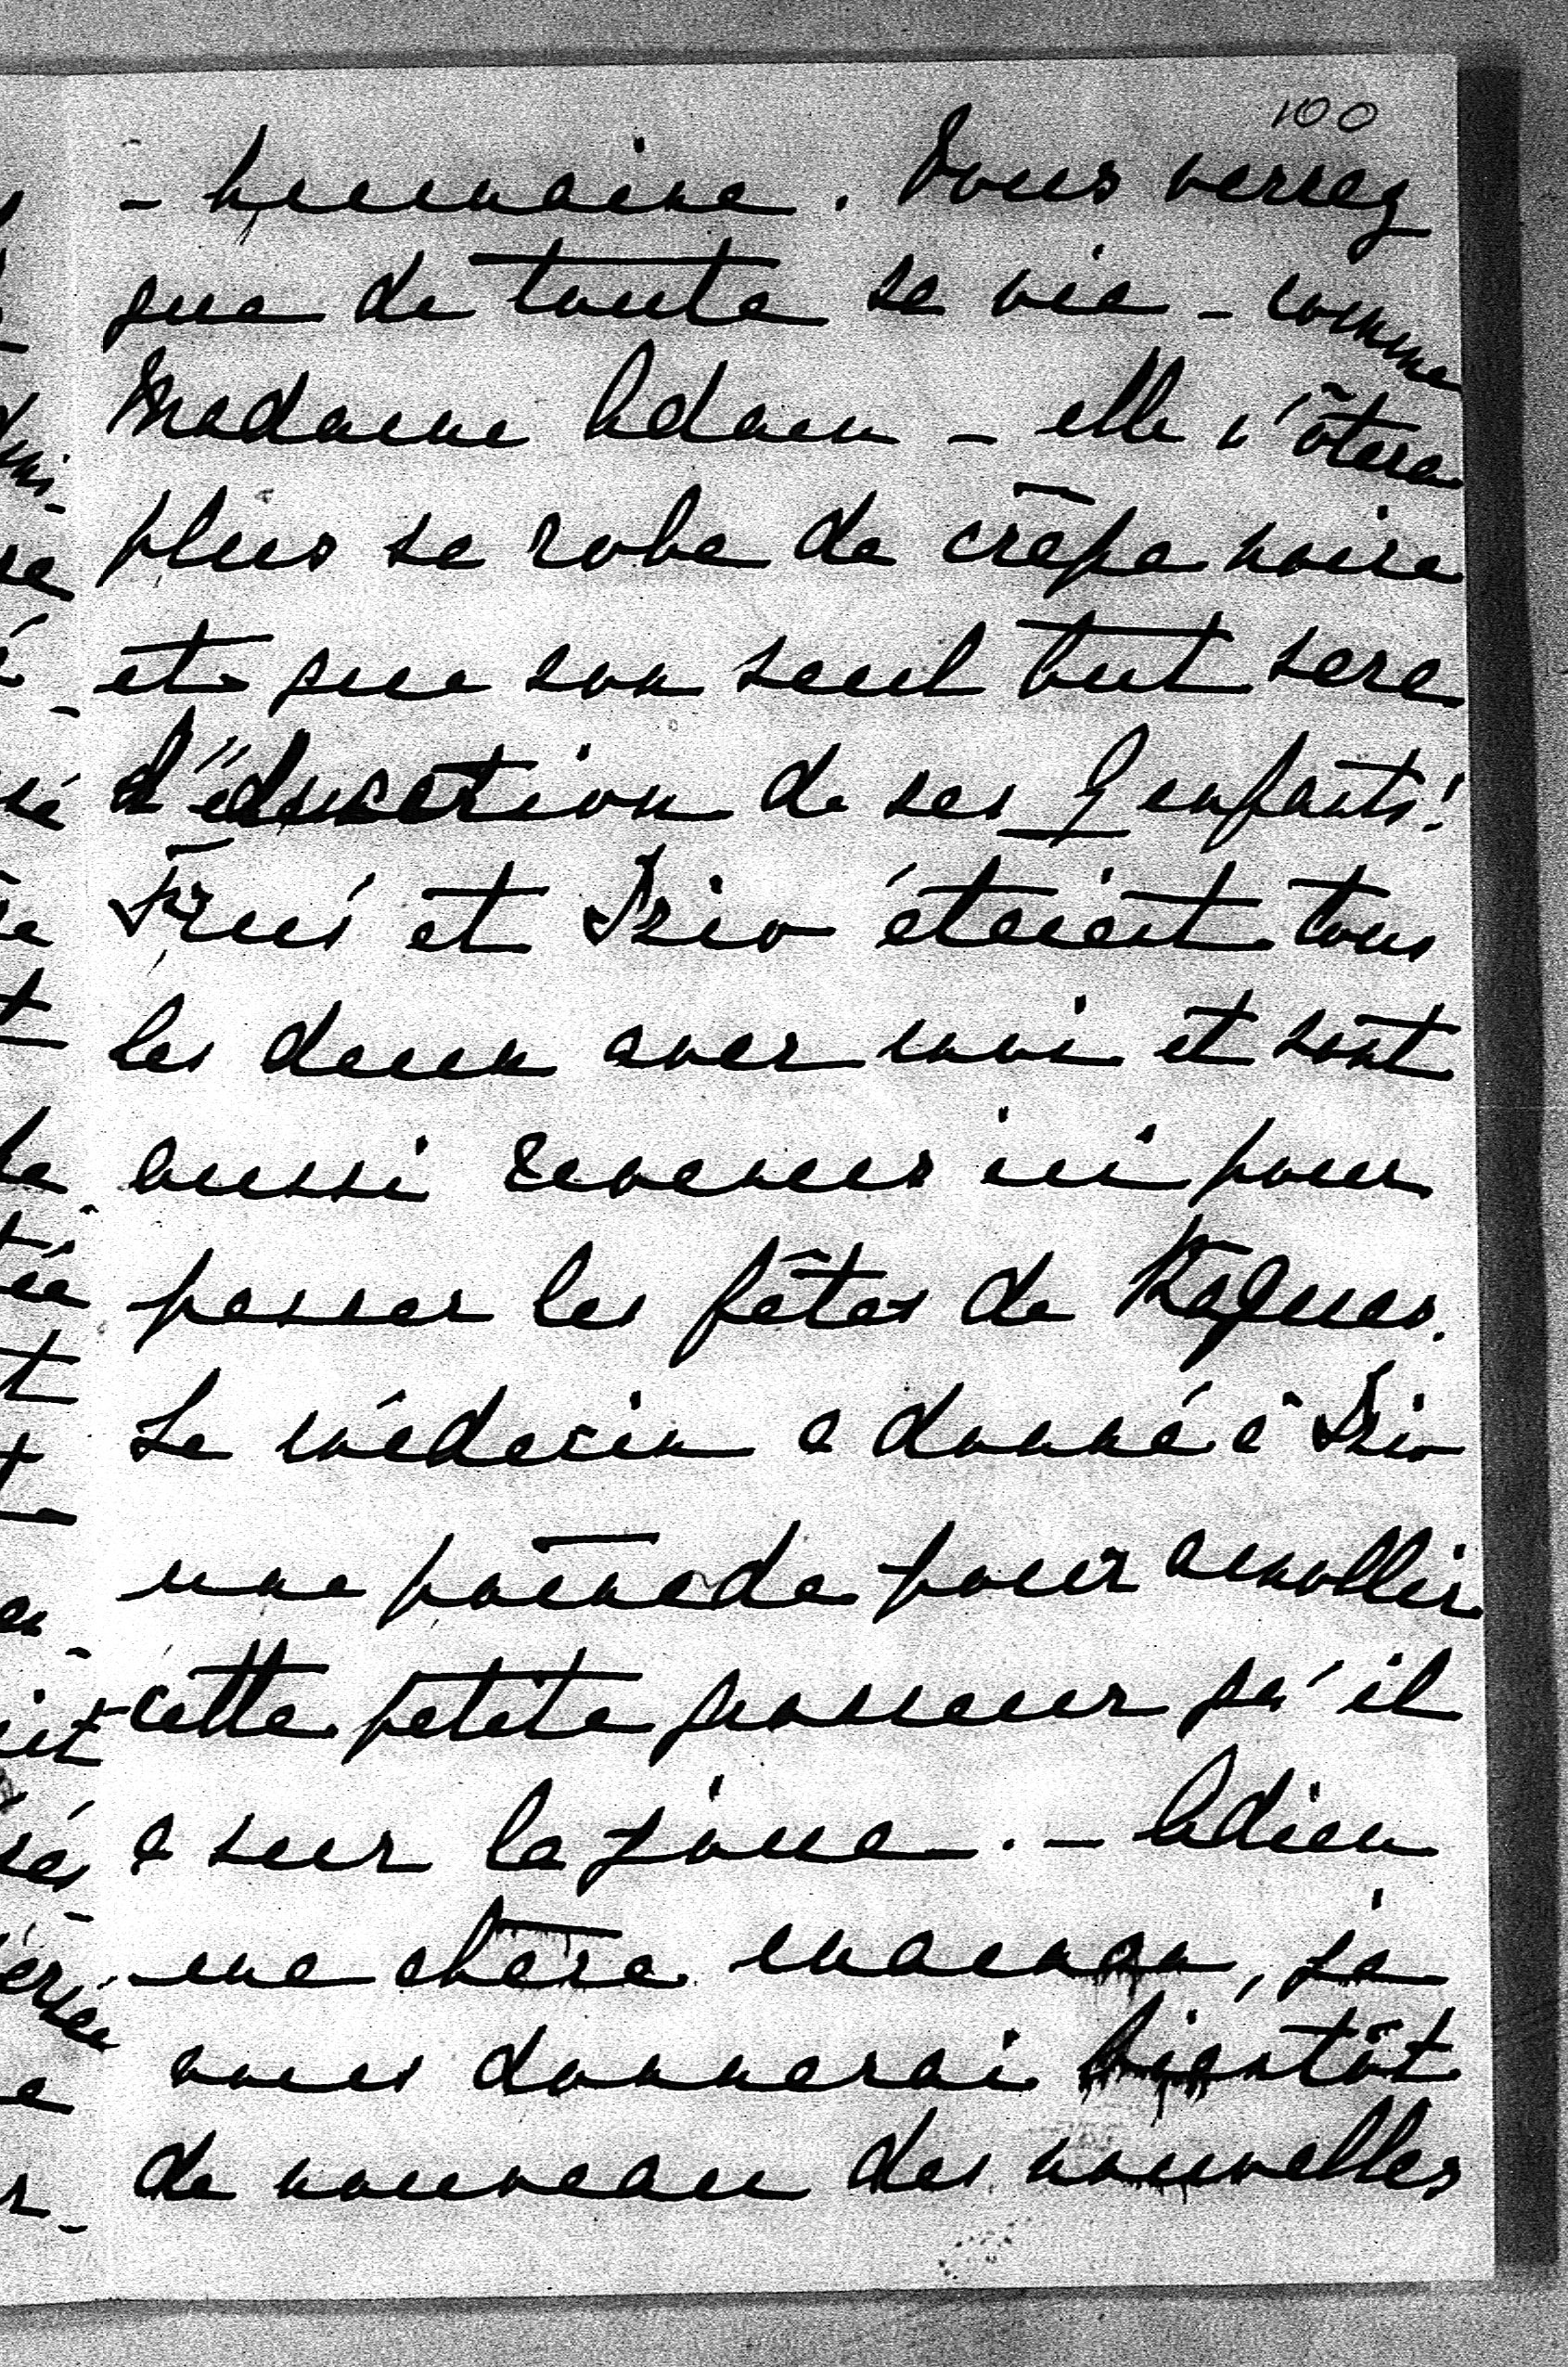 100
- humaine. Vous verrez
que de toute sa vie - comme
Madame Adam - elle n'ôtera
plus sa robe de crêpe noire
et que son seul but sera
l'éducation de ses 9 enfants!
et étaient tous
les deux avec moi et sont
aussi revenus ici pour
passer les fêtes de Pâques.
Le médecin a donné à
une pomade pour amollir
cette petite grosseur qu'il
a sur la joue. - Adieu
ma chère maman, je
vous donnerai bientôt
de nouveau des nouvelles